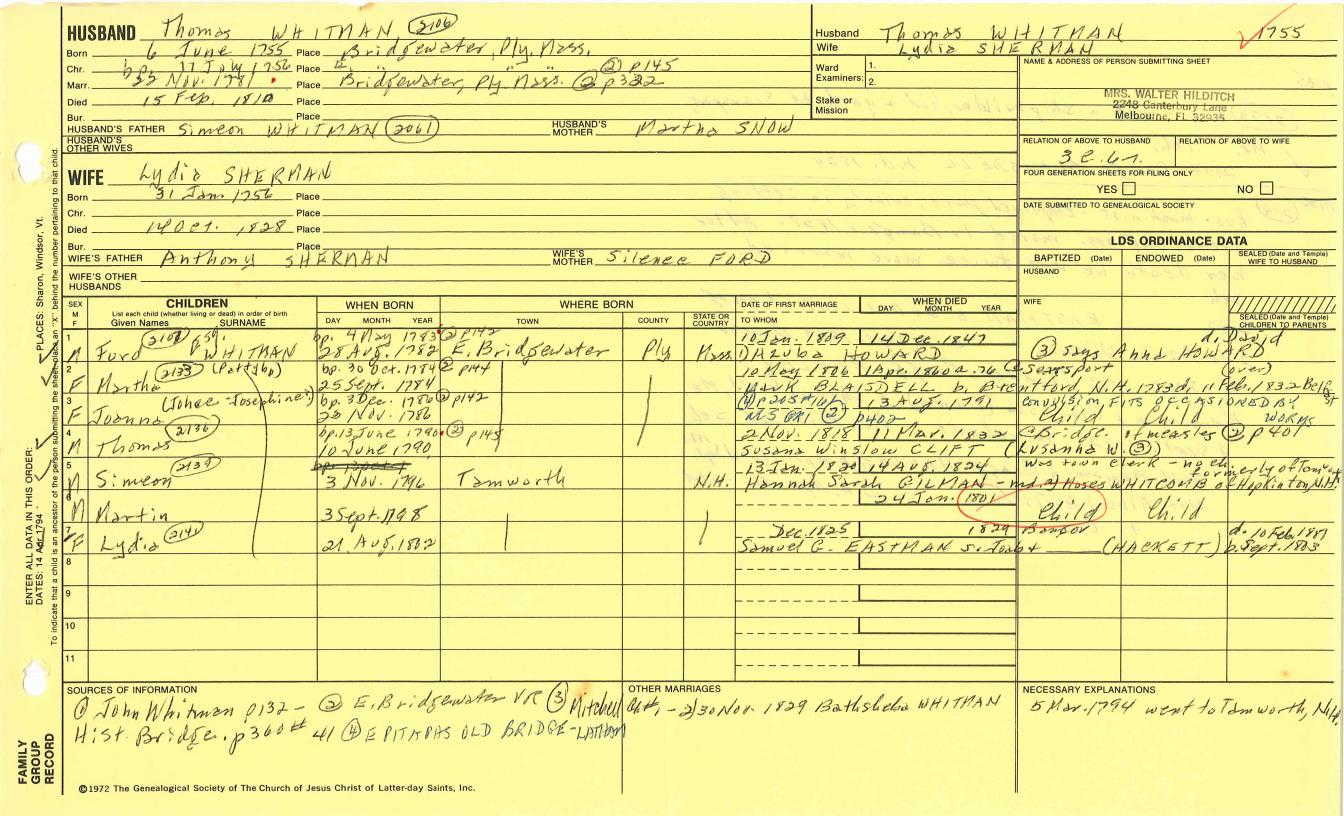 HUSBAND Thomas WHITMAN (2106)
Born 6 June 1755 Place Bridgewater, Ply, Mass.
Chr. bp. 11 July 1756 Place E. " " " (2) p145
Marr. 22 Nov. 1781 Place Bridgewater, Ply Mass. (2) p382
Died 15 Feb. 1810 Place
Bur. Place
HUSBAND'S FATHER Simeon WHITMAN (2061) HUSBAND'S MOTHER Martha SNOW
HUSBAND'S OTHER WIVES
WIFE Lydia SHERMAN
Born 31 Jan 1756 Place
Chr. Place
Died 14 Oct. 1828 Place
Bur. Place
WIFE'S FATHER Anthony SHERMAN WIFE'S MOTHER Silence FORD
WIFE'S OTHER HUSBANDS
Husband Thomas WHITMAN 1755
Wife Lydia SHERMAN
Ward Examiners: 1.
2.
Stake or Mission
NAME & ADDRESS OF PERSON SUBMITTING SHEET
MRS. WALTER HILDITCH
2248 Canterbury Lane
Melbourne, FL 32935
RELATION OF ABOVE TO HUSBAND RELATION OF ABOVE TO WIFE
FOUR GENERATION SHEETS FOR FILING ONLY
YES NO
DATE SUBMITTED TO GENEALOGICAL SOCIETY
LDS ORDINANCE DATA
BAPTIZED (Date) ENDOWED (Date) SEALED (Date and Temple) WIFE TO HUSBAND
HUSBAND
WIFE
SEALED (Date and Temple) CHILDREN TO PARENTS
SEX M F
CHILDREN
List each child (whether living or dead) in order of birth
Given Names SURNAME
WHEN BORN
DAY MONTH YEAR
WHERE BORN
TOWN COUNTY STATE OR COUNTRY
DATE OF FIRST MARRIAGE
TO WHOM
WHEN DIED
DAY MONTH YEAR
1 (2107) bp. 4 May 1783 (2) p142 10 Jan. 1809 14 Dec. 1847 d. David
M Ford WHITMAN 28 Aug. 1782 E. Bridgewater Ply Mass 1) Hzuba HOWARD (3) says Anna HOWARD
2 (2133) (Patty bp) bp. 30 Oct. 1784 (2) p144 10 May 1806 1 Apr. 1860 a. 76 Searsport (over)
F Martha 25 Sept. 1784 Mark BLAISDELL b. Brentford, N.H. 1783 d. 11 Feb. 1832 Belfast
3 bp. 3 Dec. 1786 (2) p142 (4) p205 #161 13 Aug. 1791 convulsion, FITS OCCASIONED BY WORMS
F Joanna 23 Nov. 1786 (2) p402 Child Child
4 (2136) bp. 13 June 1790 (2) p145 2 Nov. 1818 11 Mar. 1832 Bridge. of measles (2) p401
M Thomas 10 June 1790 Susana Winslow CLIFT (Lusanna W. (3))
5 (2139) 13 Jan. 1820 14 Aug. 1824 was town clerk - no ch. formerly of Tamworth
M Simeon 3 Nov. 1796 Tamworth N.H. Hannah Sarah GILMAN - md. 2) Moses WHITCOMB of Hopkinton, N.H.
6 24 Jan. 1801 Child Child
M Martin 3 Sept. 1798
7 (2140) Dec. 1825 1829 Bangor d. 10 Feb. 1881
F Lydia 21 Aug. 1802 Samuel G. EASTMAN (HACKETT) b. Sept. 1803
8
9
10
11
SOURCES OF INFORMATION
(1) John Whitman p132 - (2) E. Bridgewater VR (3) Mitchell
Hist. Bridge. p360 # 41 (4) EPITAPHS OLD BRIDGE - LATHAM
OTHER MARRIAGES
Ch#1 - 2) 30 Nov. 1829 Bathsheba WHITMAN
NECESSARY EXPLANATIONS
5 Mar. 1794 went to Tamworth, N.H.
©1972 The Genealogical Society of The Church of Jesus Christ of Latter-day Saints, Inc.
FAMILY GROUP RECORD
ENTER ALL DATA IN THIS ORDER:
DATES: 14 Apr 1794 PLACES: Sharon, Windsor, Vt.
To indicate that a child is an ancestor of the person submitting the sheet, place an "X" behind the number pertaining to that child.